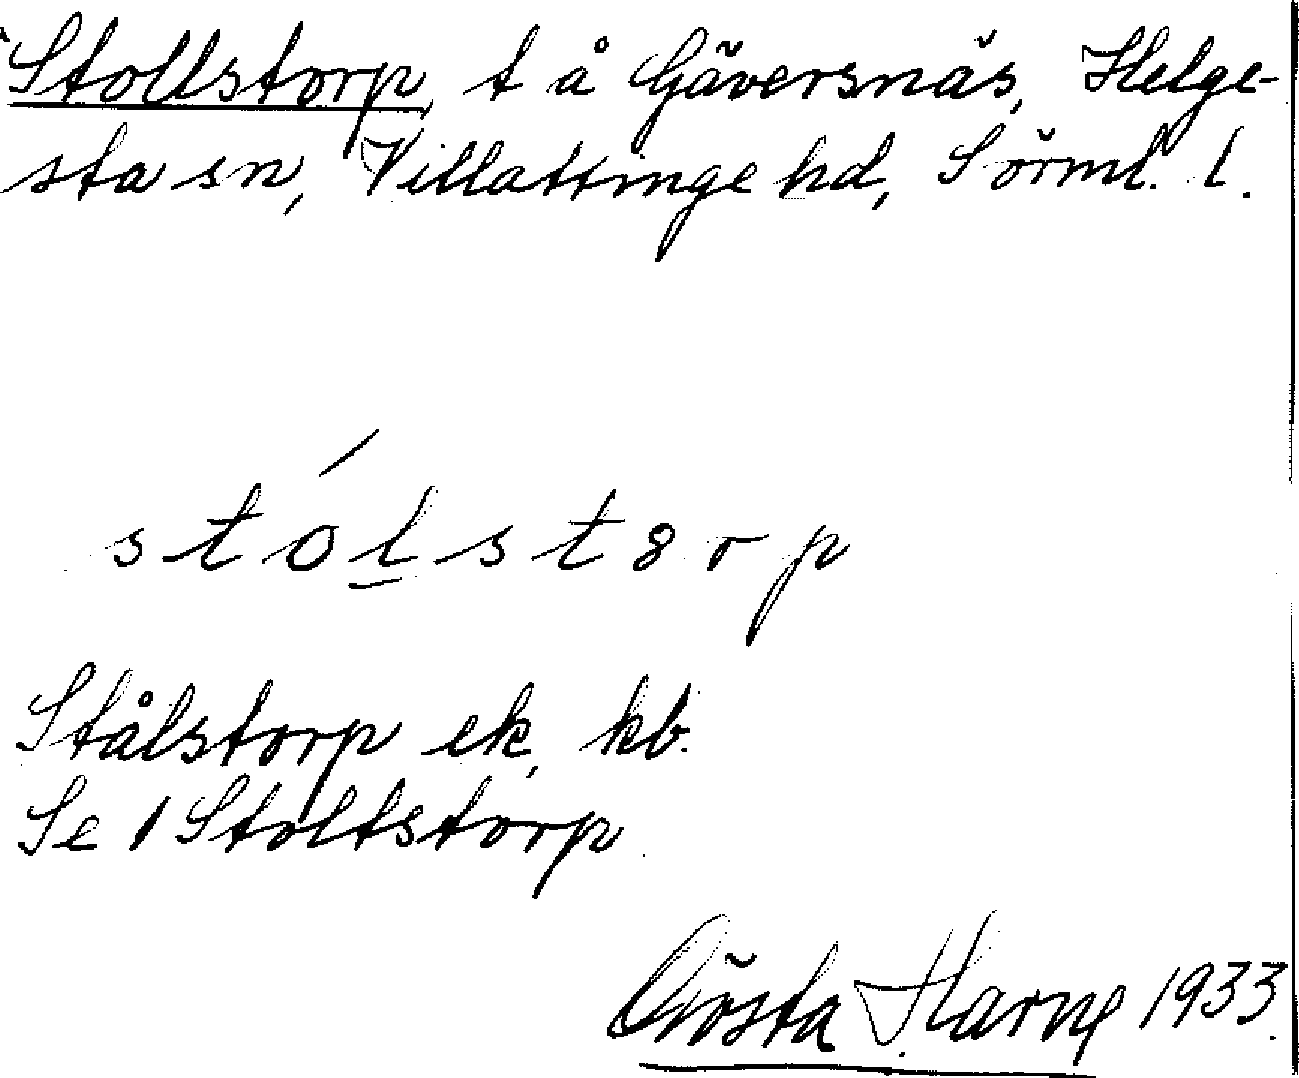 Stollstorp, t å Gäversnäs, Helge-
sta sn, Villattinge hd, Sörml. l.
stó̲lstɔrp
Stålstorp ek, kb.
Se 1 Stoltstorp
Gösta Harne 1933.